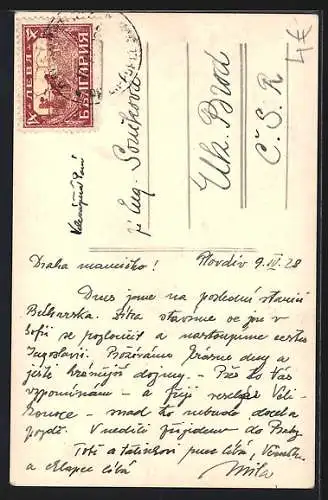 4 ЛЕВА 4
БЪЛГАРИЯ
4€
Vzácná Paní
pí Eug. Součková
Uh. Brod
Č. S. R
Drahá maminko! Plovdiv 9.IV.28
Dnes jsme na poslední stanici
Bulharska. Zítra stavíme se jen v
Sofii se rozloučit a nastoupíme cestu
Jugoslavií. Prožíváme krásné dny a
ještě krásnější dojmy. – Přes to Vás
vzpomínám – a přeji veselé Veli-
konoce – snad to nebude docela
pozdě. V neděli přijedeme do Prahy.
Tetě a tatínkovi ruce líbá,
a chlapce líbá Míla